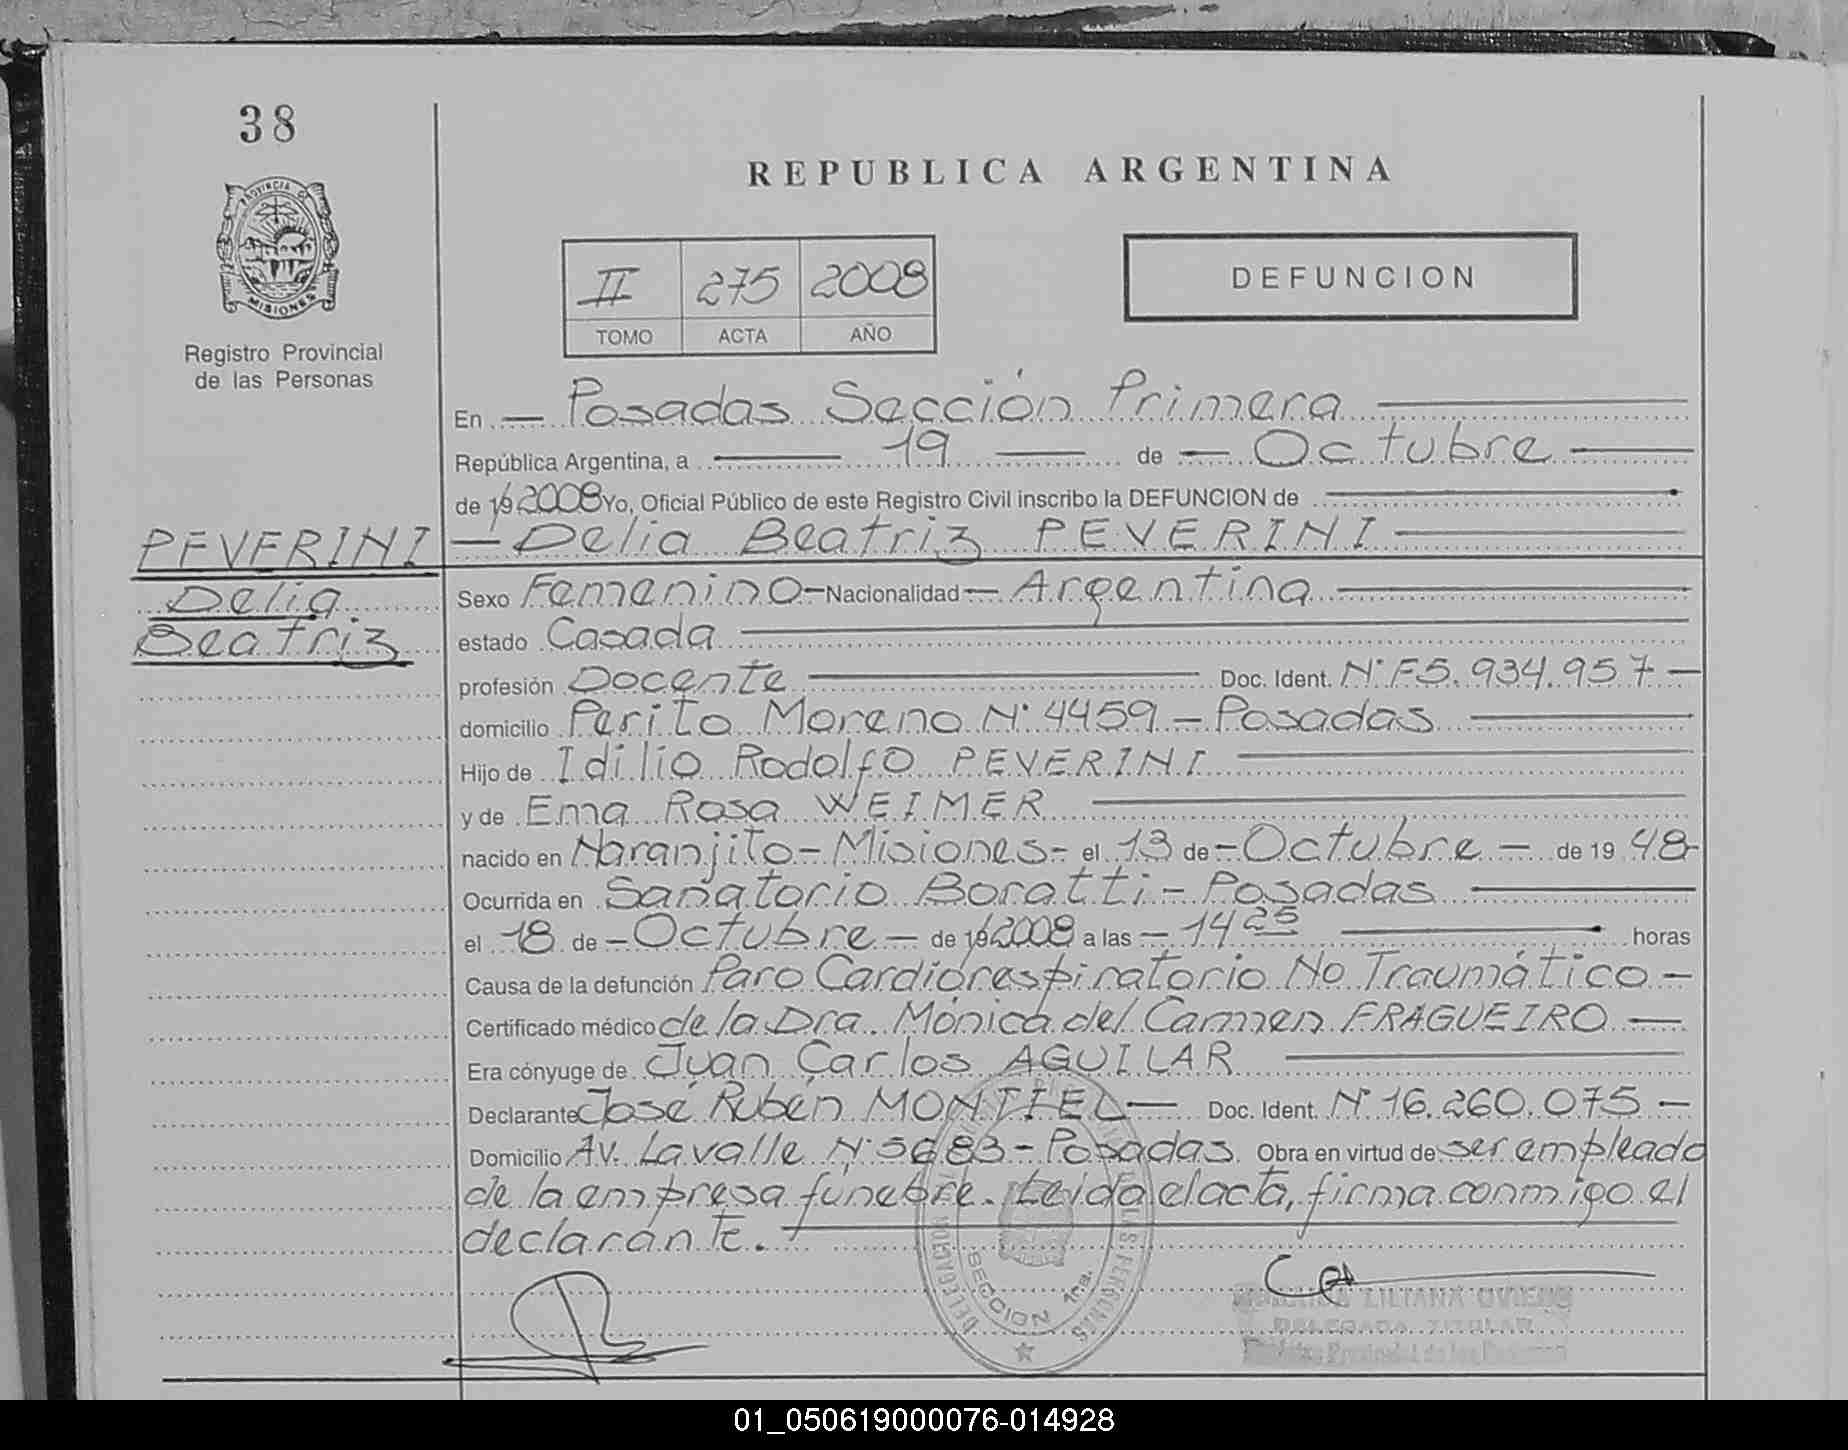 38
REPUBLICA ARGENTINA
PROVINCIA DE
MISIONES
Registro Provincial
de las Personas
II 275 2008
TOMO ACTA AÑO
DEFUNCION
En — Posadas Sección Primera
República Argentina, a 19 de — Octubre
de 19 2008 Yo, Oficial Público de este Registro Civil inscribo la DEFUNCION de
PEVERINI
Delia
Beatriz
— Delia Beatriz PEVERINI
Sexo Femenino — Nacionalidad — Argentina
estado Casada
profesión Docente Doc. Ident. N° F5.934.957 —
domicilio Perito Moreno N° 4459 — Posadas
Hijo de Idilio Rodolfo PEVERINI
y de Ema Rosa WEIMER
nacido en Naranjito - Misiones - el 13 de — Octubre — de 19 48
Ocurrida en Sanatorio Boratti - Posadas
el 18 de — Octubre — de 19 2008 a las — 14 25 horas
Causa de la defunción Paro Cardiorespiratorio No Traumático —
Certificado médico de la Dra. Mónica del Carmen FRAGUEIRO —
Era cónyuge de Juan Carlos AGUILAR
Declarante José Rubén MONTIEL — Doc. Ident. N° 16.260.075 —
Domicilio Av. Lavalle N° 5683 - Posadas Obra en virtud de ser empleado
de la empresa fúnebre. Leida el acta, firma conmigo el
declarante.
DELEGACION
LAS PERSONAS
SECCION 1ra.
LILIANA OVIEDO
DELEGADA TITULAR
Provincial de las Personas
01_050619000076-014928